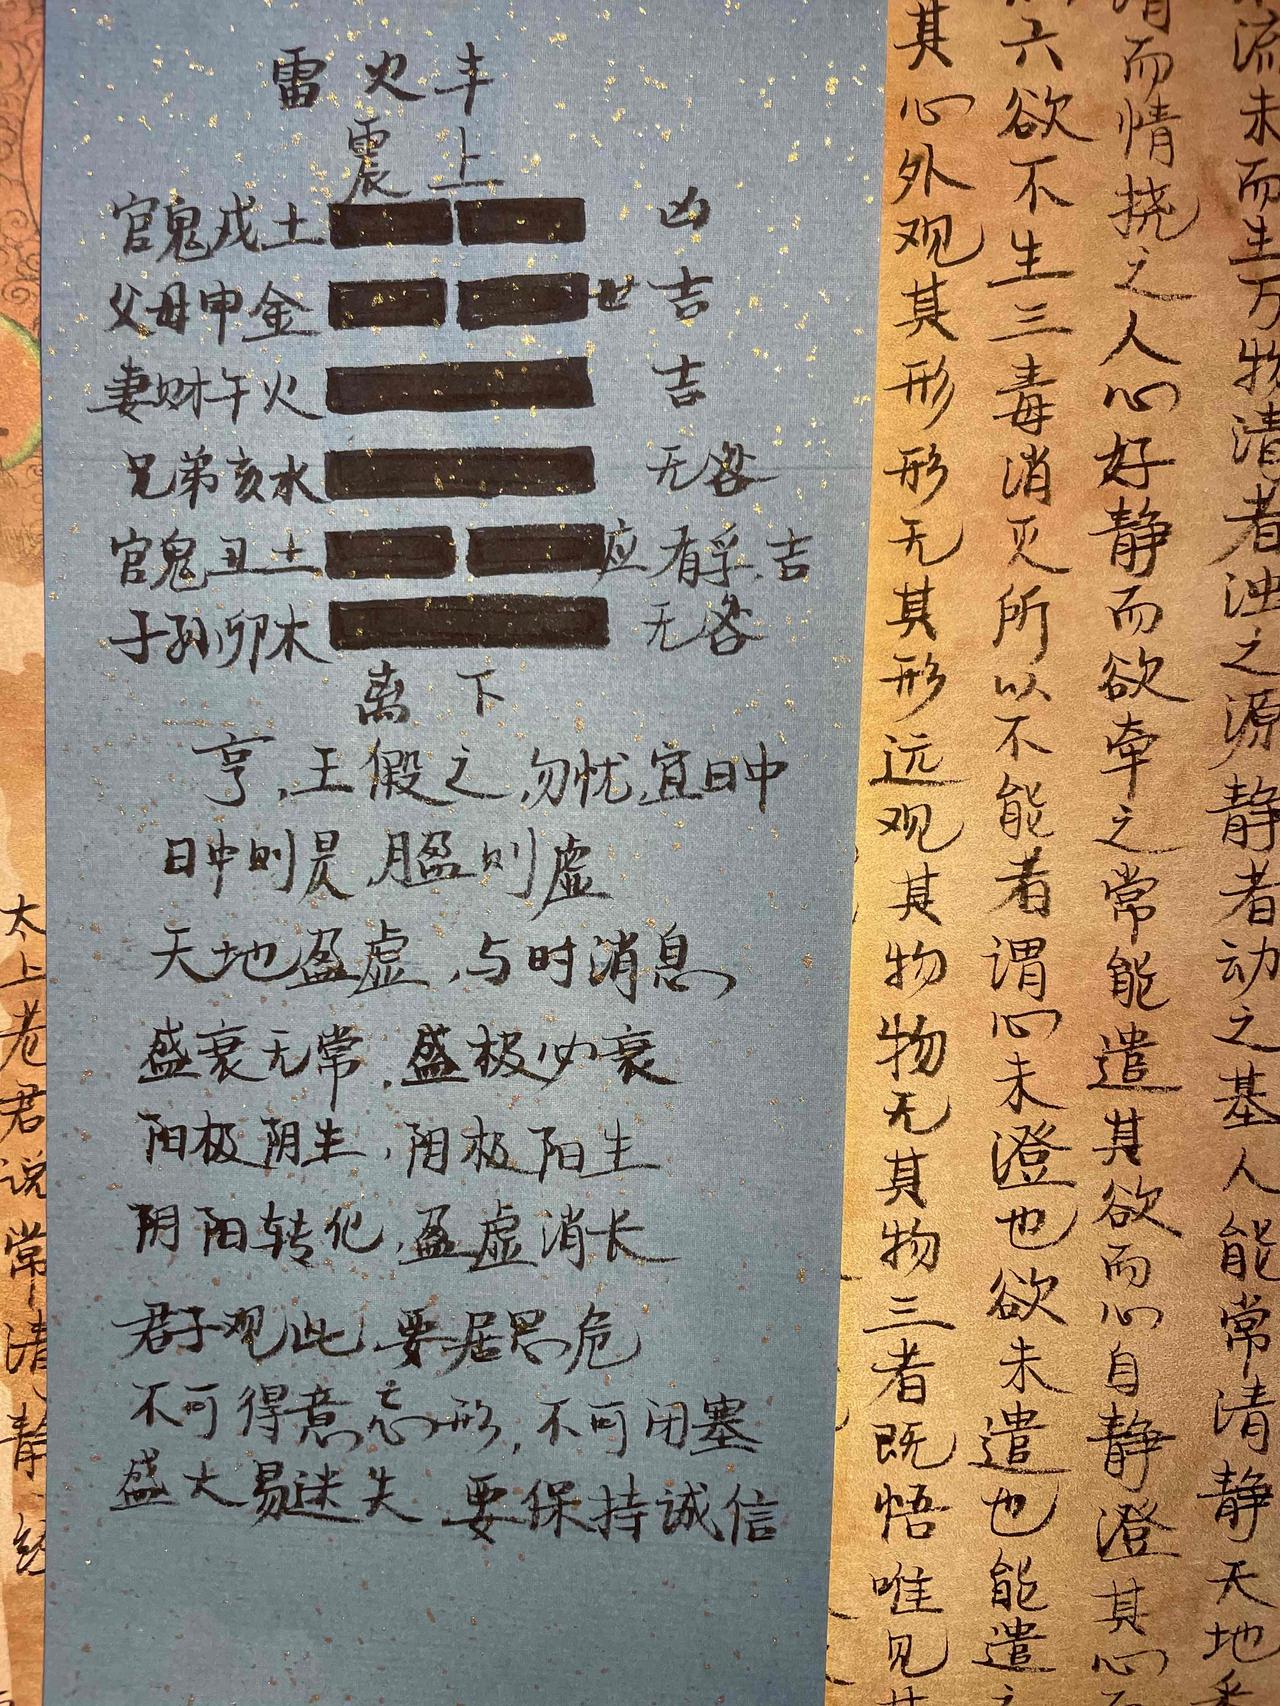 雷火丰
震上
官鬼戌土 凶
父母申金 世 吉
妻财午火 吉
兄弟亥水 无咎
官鬼丑土 应 有孚,吉
子孙卯木 无咎
离下
亨,王假之,勿忧,宜日中
日中则昃 月盈则虚
天地盈虚,与时消息
盛衰无常,盛极必衰
阳极阴生,阳极阳生
阴阳转化,盈虚消长
君子观此 要居思危
不可得意忘形,不可闭塞
盛大易迷失 要保持诚信
流末而生万物清者浊之源静者动之基人能常清静天地
清而情挠之人心好静而欲牵之常能遣其欲而心自静澄其心
六欲不生三毒消灭所以不能者谓心未澄也欲未遣也能遣
其心外观其形形无其形远观其物物无其物三者既悟唯见
太上老君说常清静经